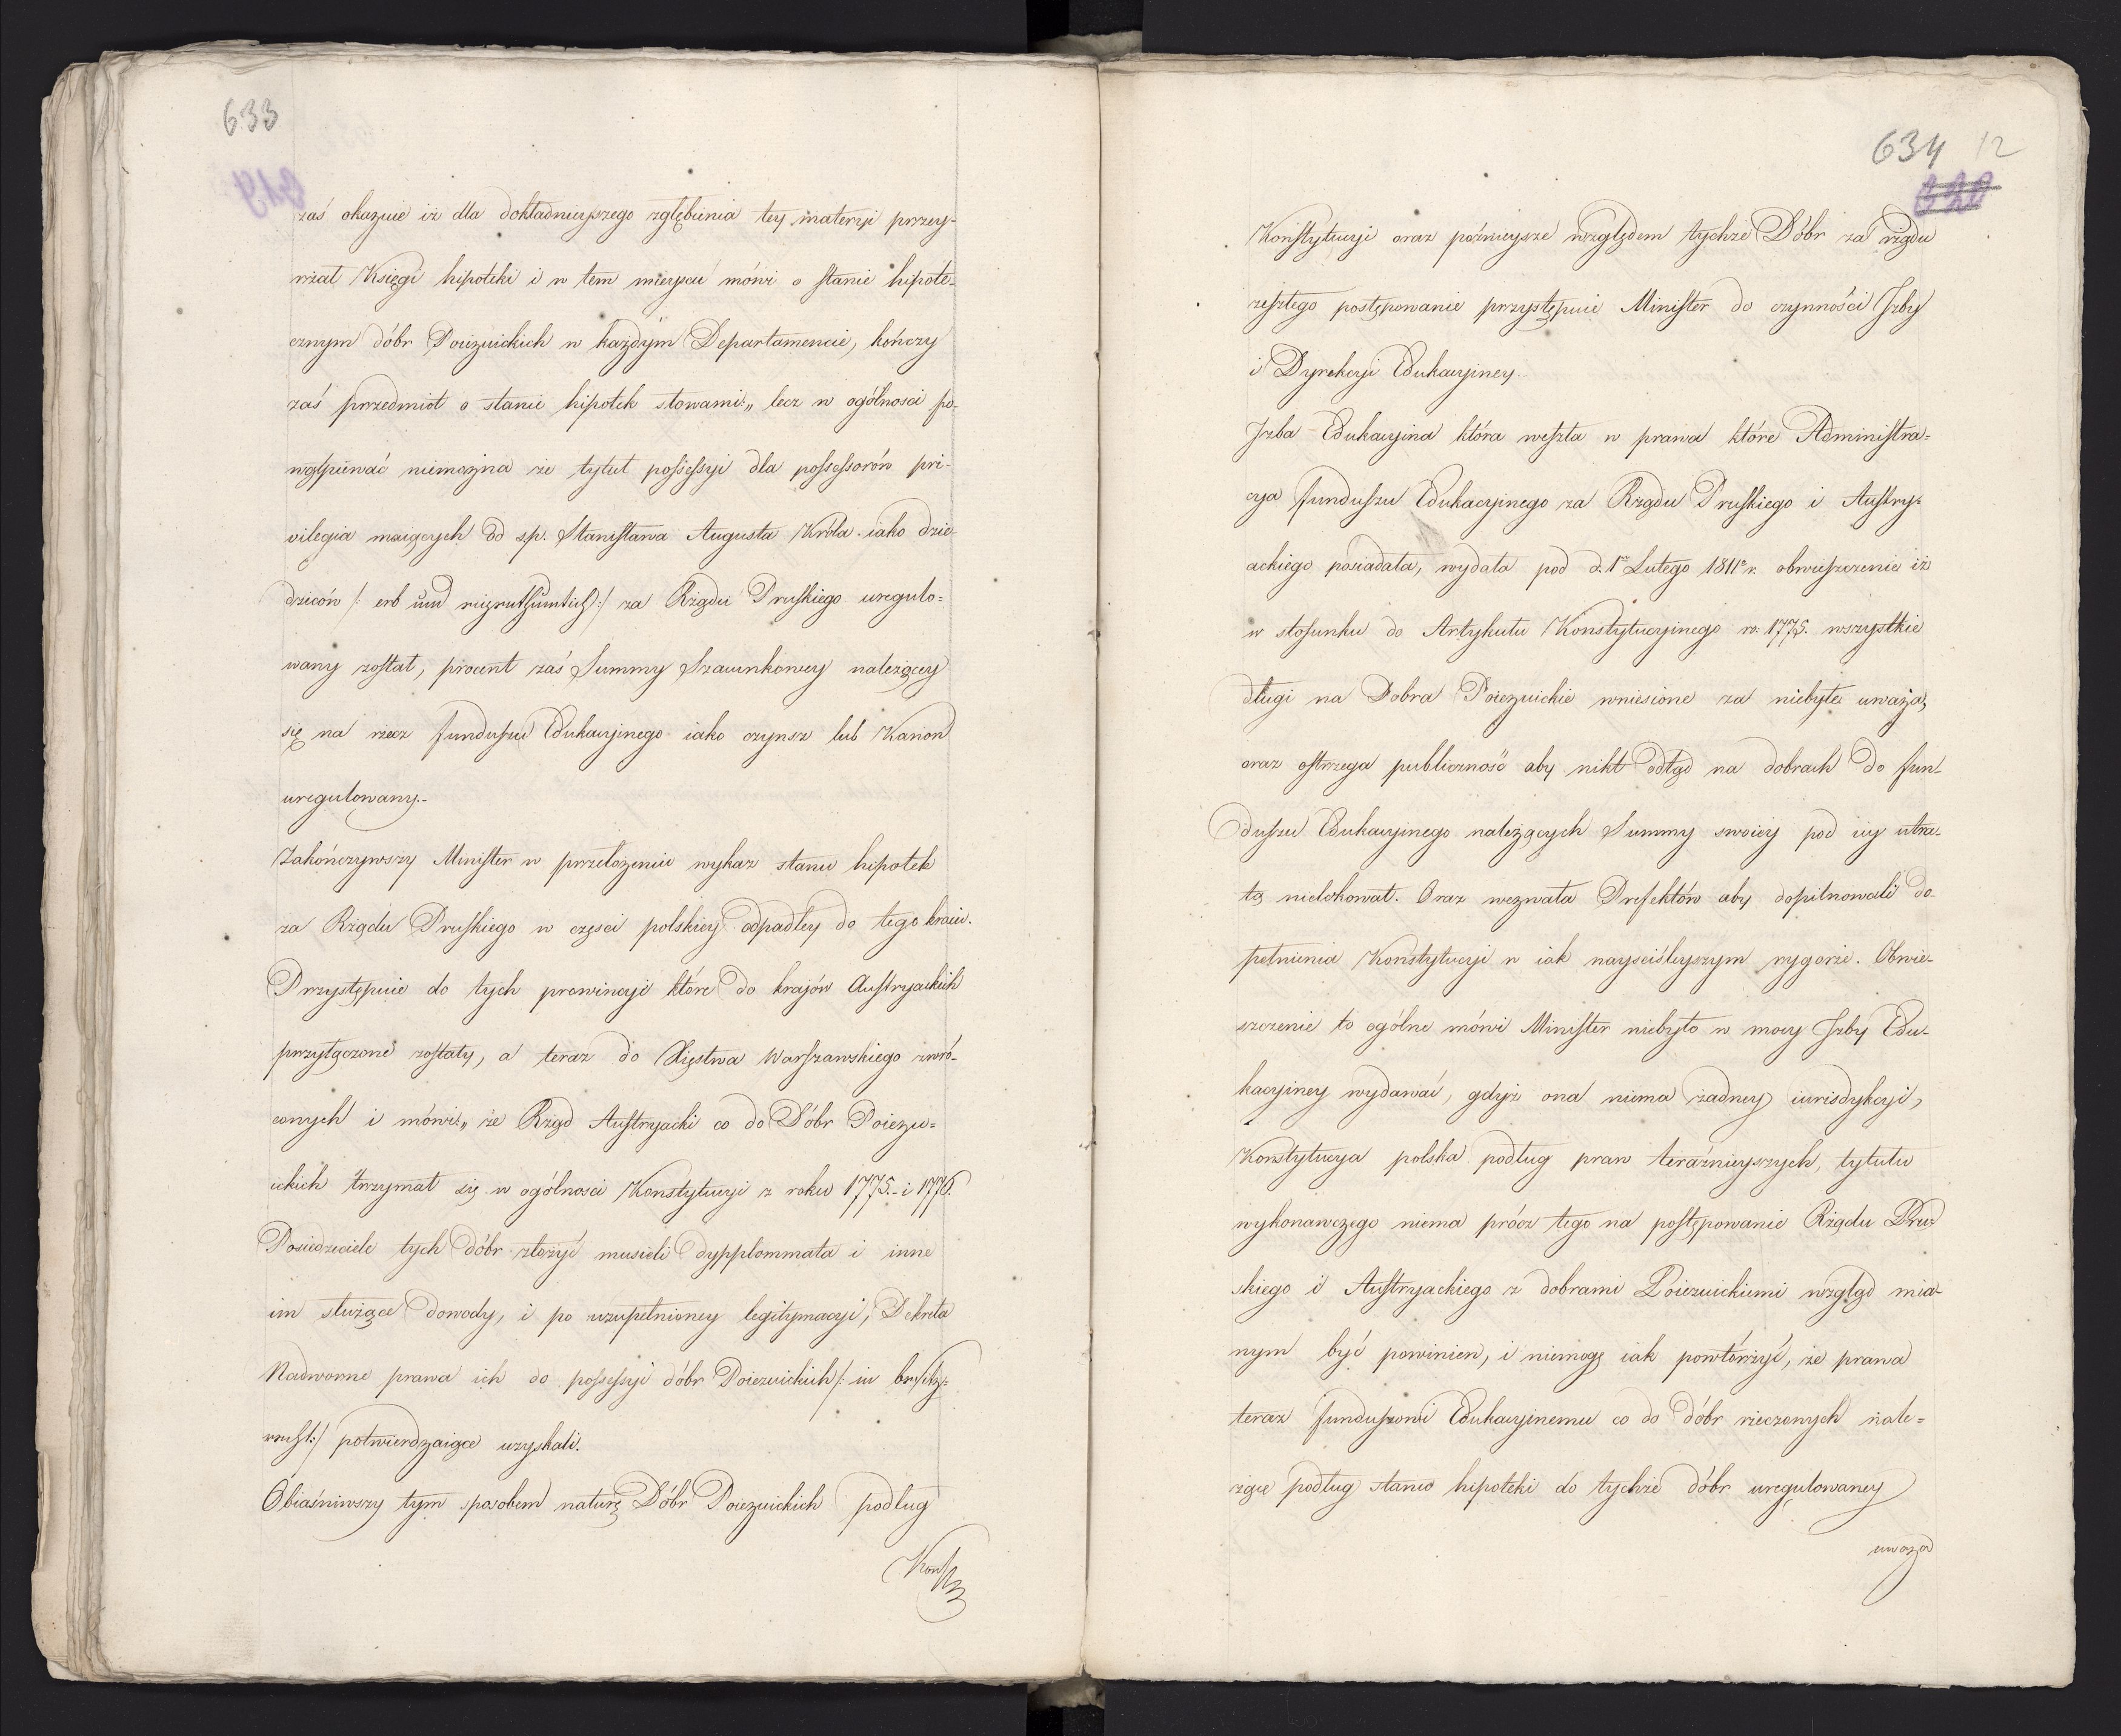 633
619
zaś okazuie iż dla dokładnieyszego zgłębienia tey materyi przey-
rżał Księgi hipoteki i w tem mieyscu mówi o stanie hipote-
cznym dóbr Poiezuickich w każdym Departamencie, kończy
zaś przedmiot o stanie hipotek słowami: „lecz w ogólnosci po-
wątpiewać niemożna że tytuł possessyi dla possessorów pri-
vilegia maiących od s.p. Stanisława Augusta Króla iako dzie-
dziców /: erb und eigenthümlich :/ za Rządu Pruskiego uregulo-
wany został, procent zaś Summy Szacunkowey należącey
się na rzecz funduszu Edukacyinego iako czynsz lub Kanon
uregulowany.-
Zakończywszy Minister w przełożeniu wykaz stanu hipotek
za Rządu Pruskiego w częsci polskiey odpadłey do tego kraiu.
Przystępuie do tych prowincyi które do krajów Austryackich
przyłączone zostały, a teraz do Xięstwa Warszawskiego zwró-
conych i mówi: „że Rząd Austryacki co do Dóbr Poiezu-
ickich trzymał się w ogólnosci Konstytucyi z roku 1775.- i 1776.
Posiedziciele tych dóbr złożyć musieli dypplommata i inne
im służące dowody, i po uzupełnioney legitymacyi, Dekreta
Nadworne prawa ich do possessyi dóbr Poiezuickich /: in besitz-
recht :/ potwierdzaiące uzyskali.
Obiaśniwszy tym sposobem naturę Dóbr Poiezuickich podług
Konsty
634 12
620
Konstytucyi oraz poźnieysze względem tychże Dóbr za rządu
zeszłego postępowanie przystępuie Minister do czynności Izby
i Dyrekcyi Edukacyiney.-
Izba Edukacyina która weszła w prawa które Administra-
cya funduszu Edukacyinego za Rządu Pruskiego i Austry-
ackiego posiadała, wydała pod d. 1o Lutego 1811o r. obwieszczenie iż
w stosunku do Artykułu Konstytucyinego ro: 1775. wszystkie
długi na Dobra Poiezuickie wniesione za niebyłe uważa,
oraz ostrzega publiczność aby nikt odtąd na dobrach do fun-
duszu Edukacyinego należących Summy swoiey pod iey utra-
tą nielokował. Oraz wezwała Prefektów aby dopilnowali do-
pełnienia Konstytucyi w iak nayściśleyszym rygorze. Obwie-
szczenie to ogólne mówi Minister niebyło w mocy Izby Edu-
kacyiney wydawać, gdyż ona niema żadney iurisdykcyi,
Konstytucya polska podług praw teraźnieyszych, tytułu
wykonawczego niema prócz tego na postępowanie Rządu Pru-
skiego i Austryackiego z dobrami Poiezuickiemi wzgląd mia-
nym być powinien, i niemogę iak powtórzyć, że prawa
teraz funduszowi Edukacyinemu co do dóbr rzeczonych nale-
żące podług stanu hipoteki do tychże dóbr uregulowaney
uważa